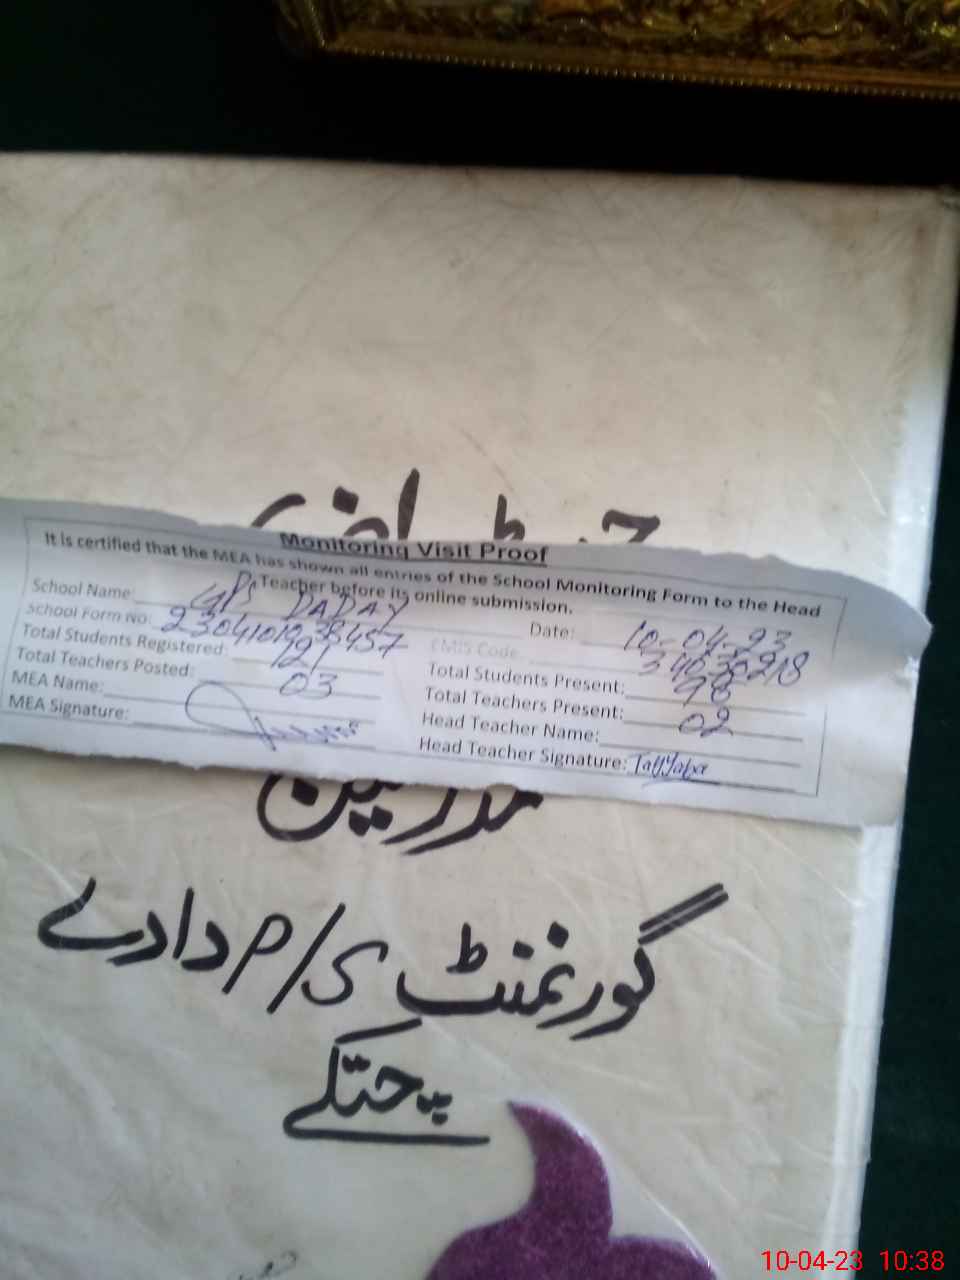 Monitoring Visit Proof
It is certified that the MEA has shown all entries of the School Monitoring Form to the Head
Teacher before its online submission.
School Name: GPS DADAY
Date: 10-04-23
School Form no: 2304101038457
EMIS Code
Total Students Registered: 121
Total Students Present: 98
Total Teachers Posted: 03
Total Teachers Present: 02
MEA Name:
Head Teacher Name:
MEA Signature:
Head Teacher Signature: Tayyaba
مدرسین
گورنمنٹ P/S دادے
چتکے
10-04-23 10:38